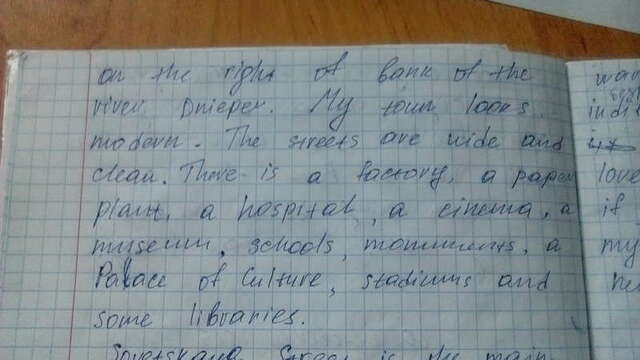 on the right of bank of the
river Dnieper. My town looks
modern. The streets are wide and
clean. There is a factory, a paper
plant, a hospital, a cinema, a
museum, schools, monuments, a
Palace of Culture, stadiums and
some libraries.
Street is the main
love
if
my